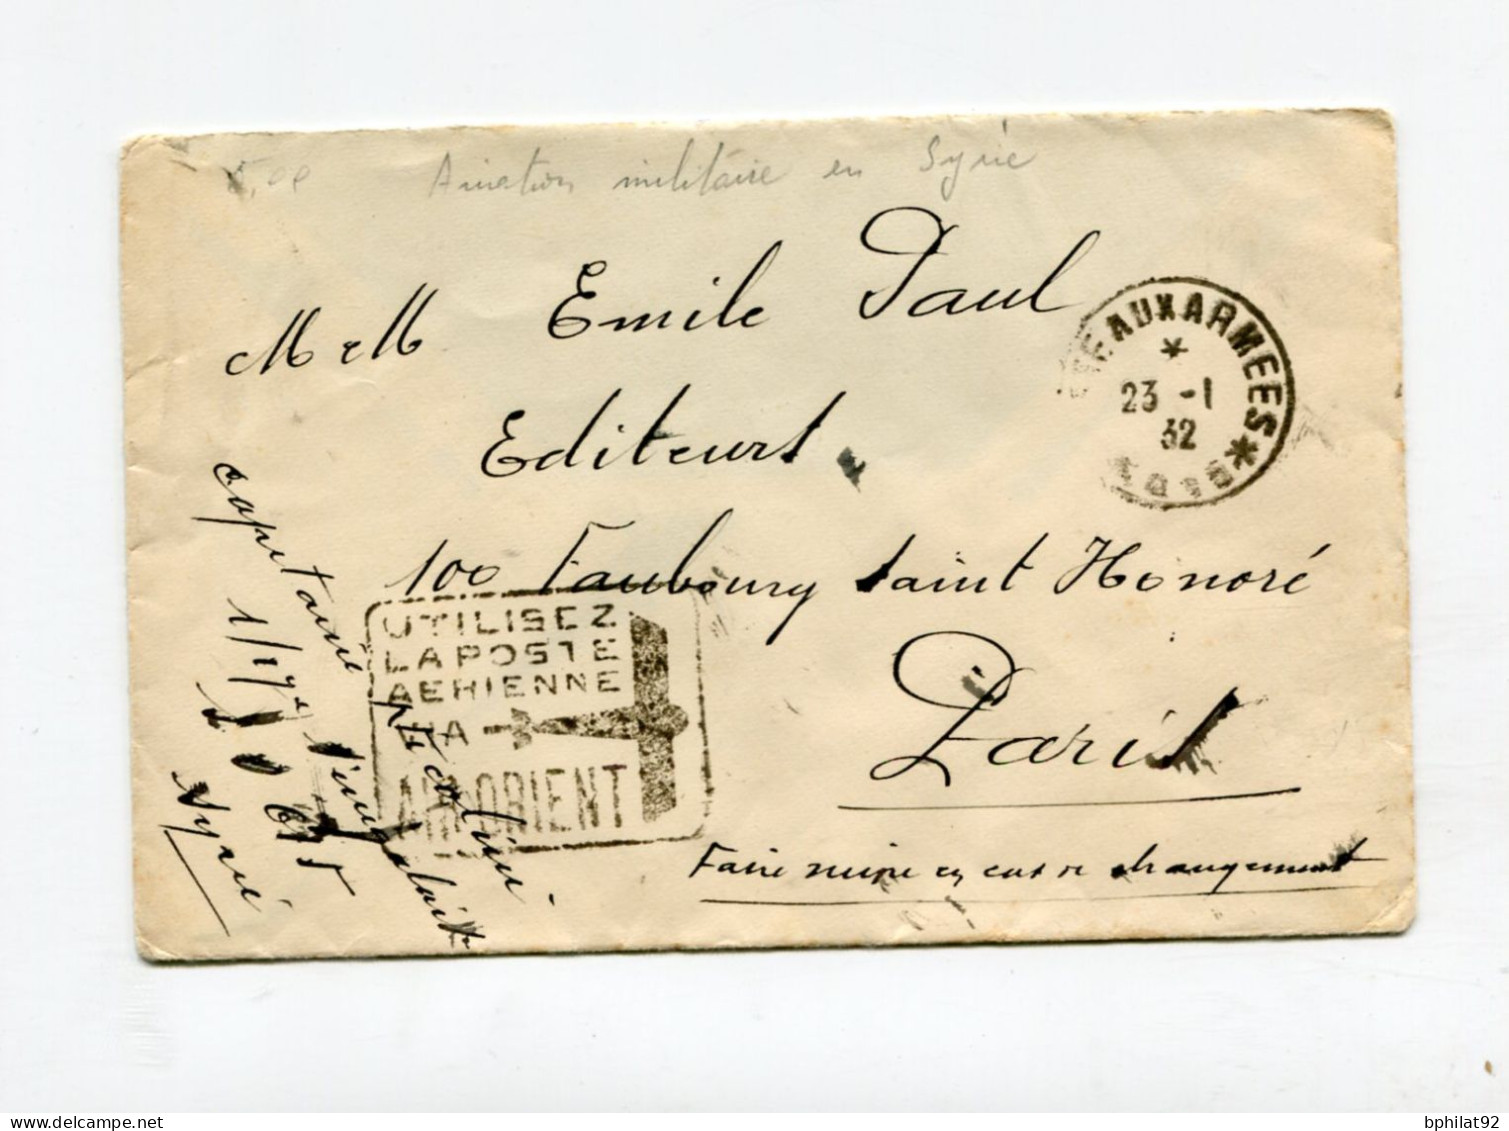 5,00 Aviation militaire en Syrie
M et M Emile Paul
Editeurs
100 Faubourg Saint Honoré
Paris
Faire suivre en cas de changement
E AUX ARMEES
23 -1
32
UTILISEZ
LA POSTE
AERIENNE
AIR ORIENT
capitaine
1/17e
S P 615
Syrie
bphilat92